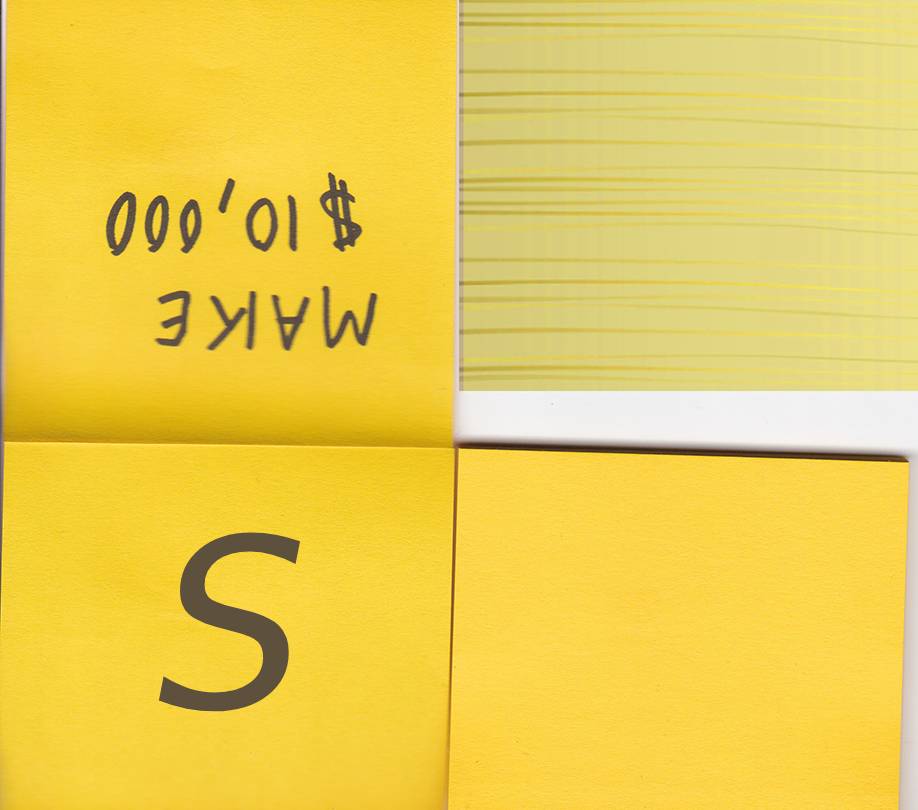 MAKE
$10,000
S